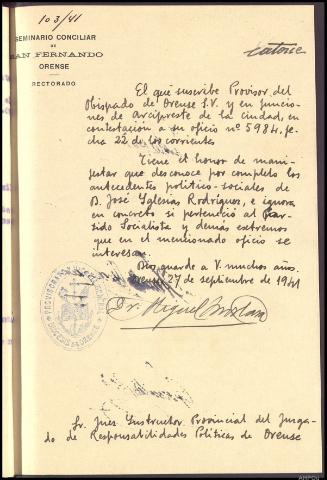 103/41
SEMINARIO CONCILIAR
DE
SAN FERNANDO
ORENSE
RECTORADO
catorce
El que suscribe Provisor del
Obispado de Orense S.V. y en funcio-
nes de Arcipreste de la ciudad, en
contestación a su oficio nº 5984, fe-
cha 22 de los corrientes
Tiene el honor de mani-
festar que desconoce por completo los
antecedentes politico-sociales de
D. José Iglesias Rodriguez, e ignora
en concreto si perteneció al Par-
tido Socialista y demás extremos
que en el mencionado oficio se
interesan.
Dios guarde a V. muchos años.
Orense 27 de septiembre de 1941
Dr. Miguel
DIOCESIS DE ORENSE
Sr. Juez Instructor Provincial del Juzga-
do de Responsabilidades Políticas de Orense